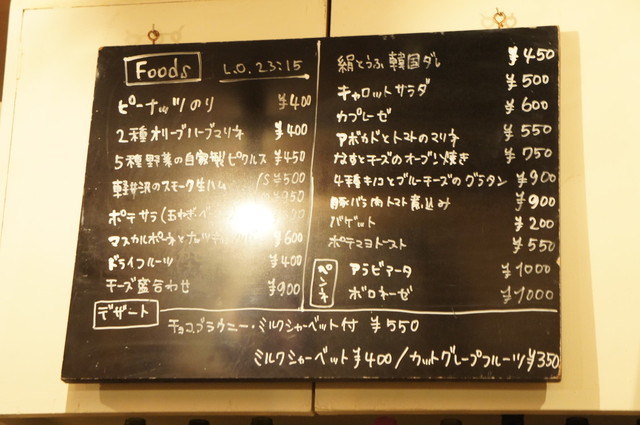 Foods L.O. 23:15
ピーナッツのり ¥400
2種オリーブハーブマリネ ¥400
5種野菜の自家製ピクルス ¥450
軽井沢のスモーク生ハム /S ¥500
¥950
ポテサラ
マスカルポーネとナッツ ¥600
ドライフルーツ ¥400
チーズ盛合わせ ¥900
絹とうふ 韓国ダレ ¥450
キャロットサラダ ¥500
カプレーゼ ¥600
アボカドとトマトのマリネ ¥550
なすとチーズのオーブン焼き ¥750
4種キノコとブルーチーズのグラタン ¥900
豚バラ肉トマト煮込み ¥900
バゲット ¥200
ポテマヨトースト ¥550
ペンネ
アラビアータ ¥1000
ボロネーゼ ¥1000
デザート
チョコブラウニー・ミルクシャーベット付 ¥550
ミルクシャーベット ¥400 / カットグレープフルーツ ¥350